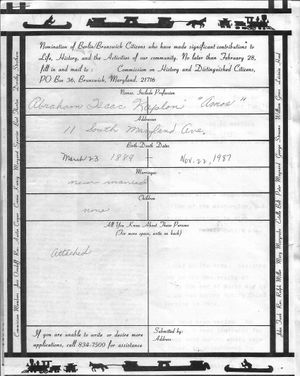 Nomination of Berlin/Brunswick Citizens who have made significant contributions to
Life, History, and the Activities of our community. No later than February 28,
fill in and mail to : Commission on History and Distinguished Citizens,
PO Box 36, Brunswick, Maryland. 21716
Names: Include Profession
Abraham Isaac Kaplon "Amos"
Addresses
11 South Maryland Ave,
Birth-Death Dates
March 23 1889 - Nov. 22, 1987
Marriages
never married
Children
none
All You Know About These Persons
(For more space, write on back)
Attached
If you are unable to write or desire more
applications, call 834-7500 for assistance
Submitted by:
Address